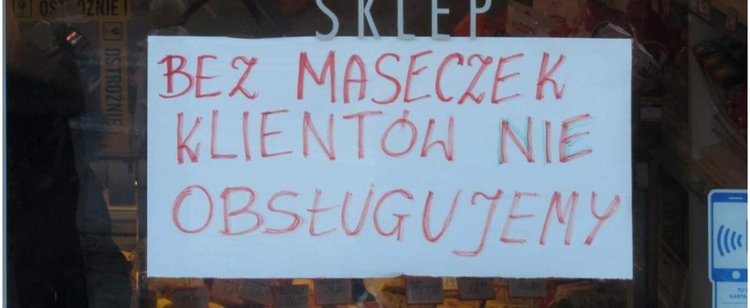 OSTROŻNIE!
SKLEP
OSTROŻNIE!
BEZ MASECZEK
KLIENTÓW NIE
OBSŁUGUJEMY